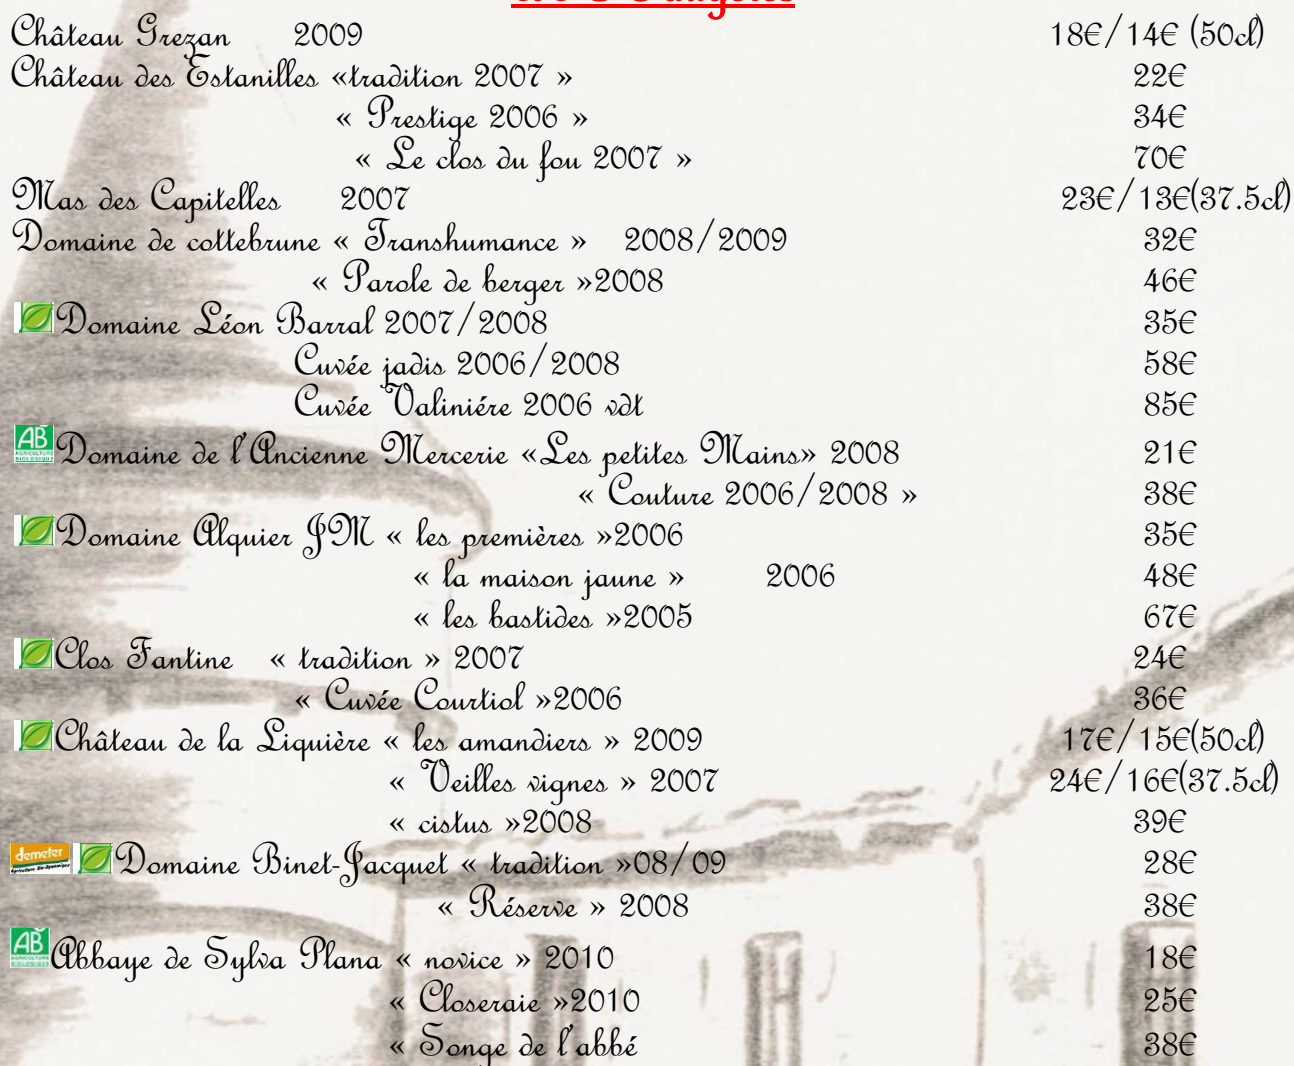 Château Grezan 2009 18€/14€ (50cl)
Château des Estanilles «tradition 2007 » 22€
« Prestige 2006 » 34€
« Le clos du fou 2007 » 70€
Mas des Capitelles 2007 23€/13€(37.5cl)
Domaine de cottebrune « Transhumance » 2008/2009 32€
« Parole de berger »2008 46€
Domaine Léon Barral 2007/2008 35€
Cuvée jadis 2006/2008 58€
Cuvée Valiniére 2006 vdt 85€
AB AGRICULTURE BIOLOGIQUE Domaine de l'Ancienne Mercerie «Les petites Mains» 2008 21€
« Couture 2006/2008 » 38€
Domaine Alquier JM « les premières »2006 35€
« la maison jaune » 2006 48€
« les bastides »2005 67€
Clos Fantine « tradition » 2007 24€
« Cuvée Courtiol »2006 36€
Château de la Liquière « les amandiers » 2009 17€/15€(50cl)
« Veilles vignes » 2007 24€/16€(37.5cl)
« cistus »2008 39€
demeter Domaine Binet-Jacquet « tradition »08/09 28€
« Réserve » 2008 38€
AB AGRICULTURE BIOLOGIQUE Abbaye de Sylva Plana « novice » 2010 18€
« Closeraie »2010 25€
« Songe de l'abbé 38€